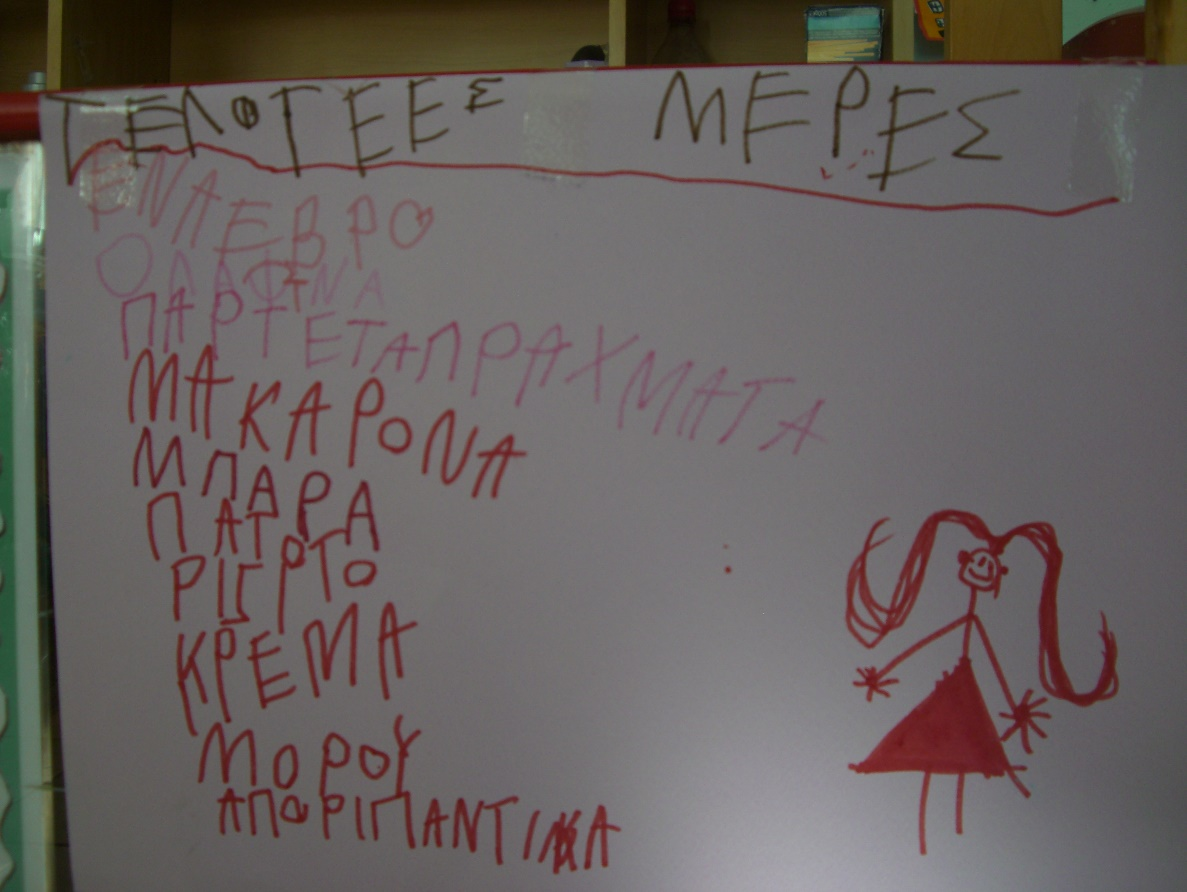 ΤΕΛΟΤΕΕΣ ΜΕΡΕΣ
ΕΝΑ ΕΒΡΟ
ΠΑΡΤΕ ΤΑ ΠΡΑΧΜΑΤΑ
ΜΑΚΑΡΟΝΑ
ΜΠΑΡΑ
ΠΑΤ
ΚΡΕΜΑ
ΜΟΡΟΥ
ΑΠΟΡΙΠΑΝΤΙΚΑ